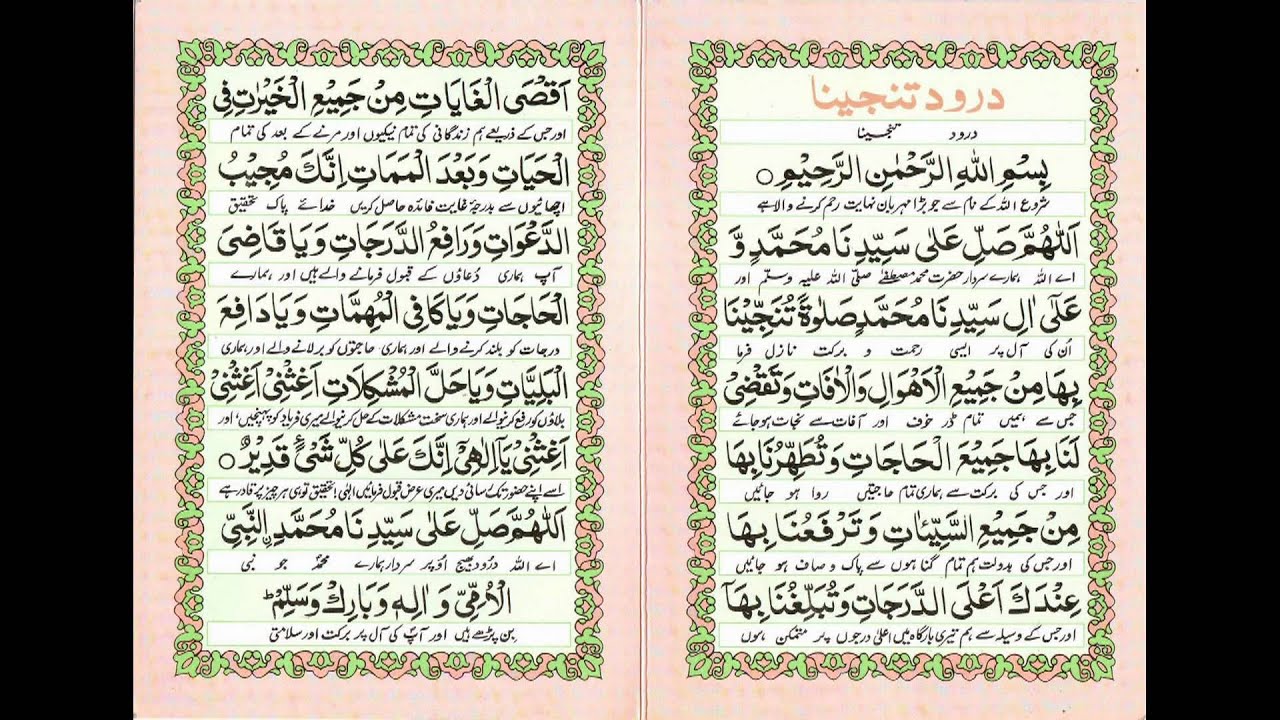 درود تنجینا
درود تنجینا
بِسْمِ اللهِ الرَّحْمٰنِ الرَّحِيْمِ ○
شروع اللہ کے نام سے جو بڑا مہربان نہایت رحم کرنے والا ہے
اَللّٰهُمَّ صَلِّ عَلٰى سَيِّدِنَا مُحَمَّدٍ وَّ
اے اللہ ہمارے سردار حضرت محمد مصطفےٰ صلی اللہ علیہ وسلم اور
عَلٰٓى اٰلِ سَيِّدِنَا مُحَمَّدٍ صَلٰوةً تُنَجِّيْنَا
اُن کی آل پر ایسی رحمت و برکت نازل فرما
بِهَا مِنْ جَمِيْعِ الْاَهْوَالِ وَالْاٰفَاتِ وَتَقْضِىْ
جس سے ہمیں تمام ڈر خوف اور آفات سے نجات ہوجائے
لَنَا بِهَا جَمِيْعَ الْحَاجَاتِ وَتُطَهِّرُنَا بِهَا
اور جس کی برکت سے ہماری تمام حاجتیں روا ہو جائیں
مِنْ جَمِيْعِ السَّيِّئَاتِ وَتَرْفَعُنَا بِهَا
اور جس کی بدولت ہم تمام گناہوں سے پاک و صاف ہو جائیں
عِنْدَكَ اَعْلَى الدَّرَجَاتِ وَتُبَلِّغُنَا بِهَآ
اور جس کے وسیلہ سے ہم تیری بارگاہ میں اعلیٰ درجوں پر متمکن ہوں
اَقْصَى الْغَايَاتِ مِنْ جَمِيْعِ الْخَيْرَاتِ فِى
اور جس کے ذریعے ہم زندگانی کی تمام نیکیوں اور مرنے کے بعد کی تمام
الْحَيَاتِ وَبَعْدَ الْمَمَاتِ اِنَّكَ مُجِيْبُ
اچھائیوں سے بدرجۂ غایت فائدہ حاصل کریں خدائے پاک تحقیق
الدَّعْوَاتِ وَرَافِعُ الدَّرَجَاتِ وَيَا قَاضِىَ
آپ ہماری دُعاؤں کے قبول فرمانے والے ہیں اور ہمارے
الْحَاجَاتِ وَيَا كَافِىَ الْمُهِمَّاتِ وَيَا دَافِعَ
درجات کو بلند کرنے والے اور ہماری حاجتوں کو بر لانے والے اور ہماری
الْبَلِيَّاتِ وَيَا حَلَّ الْمُشْكِلَاتِ اَغِثْنِىْ اَغِثْنِىْ
بلاؤں کو رفع کرنیوالے اور ہماری سخت مشکلات کے حل کرنیوالے میری فریاد کو پہنچیں، اور
اَغِثْنِىْ يَآ اِلٰهِىْ اِنَّكَ عَلٰى كُلِّ شَىْءٍ قَدِيْرٌ ○
اسے اپنے حضور تک رسائی دیں میری عرض قبول فرمائیں الٰہی! تحقیق تو ہی ہر چیز پر قادر ہے
اَللّٰهُمَّ صَلِّ عَلٰى سَيِّدِنَا مُحَمَّدِ ۨالنَّبِىِّ
اے اللہ درود بھیج اُوپر سردار ہمارے محمدؐ جو نبی
الْاُمِّىِّ وَاٰلِهٖ وَبَارِكْ وَسَلِّمْ ؕ
بِن پڑھے ہیں اور آپؐ کی آل پر برکت اور سلامتی